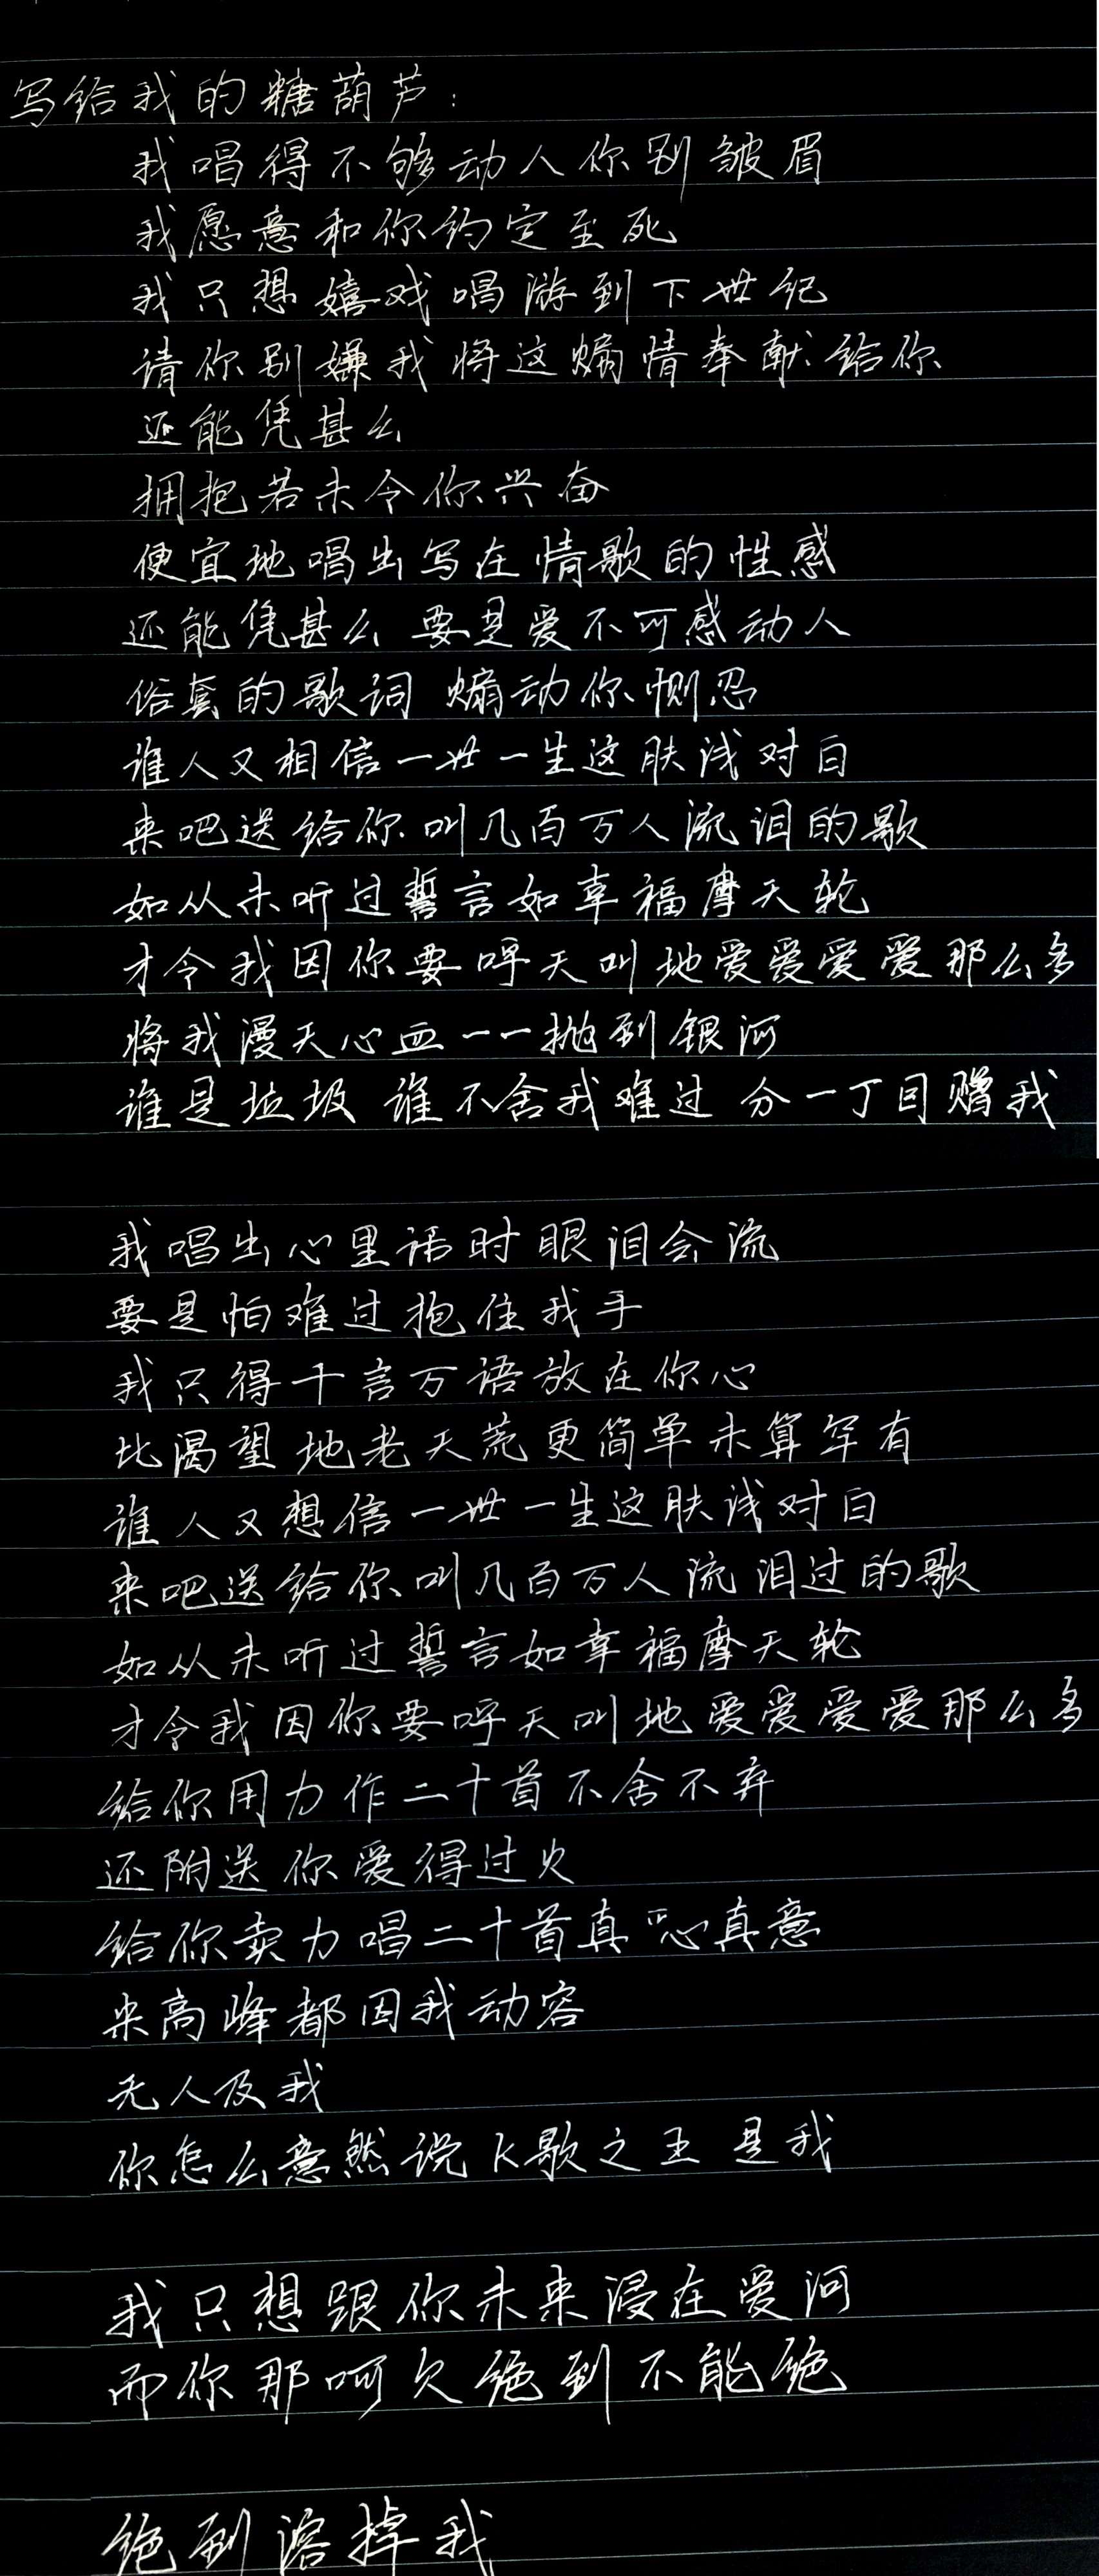 写给我的糖葫芦：
我唱得不够动人你别皱眉
我愿意和你约定至死
我只想嬉戏唱游到下世纪
请你别嫌我将这煽情奉献给你
还能凭甚么
拥抱若未令你兴奋
便宜地唱出写在情歌的性感
还能凭甚么 要是爱不可感动人
俗套的歌词 煽动你恻忍
谁人又相信一世一生这肤浅对白
来吧送给你叫几百万人流泪的歌
如从未听过誓言如幸福摩天轮
才令我因你要呼天叫地爱爱爱爱那么多
将我漫天心血一一抛到银河
谁是垃圾 谁不舍我难过 分一丁目赠我
我唱出心里话时眼泪会流
要是怕难过抱住我手
我只得千言万语放在你心
比渴望地老天荒更简单未算罕有
谁人又想信一世一生这肤浅对白
来吧送给你叫几百万人流泪过的歌
如从未听过誓言如幸福摩天轮
才令我因你要呼天叫地爱爱爱爱那么多
给你用力作二十首不舍不弃
还附送你爱得过火
给你卖力唱二十首真心真意
来高峰都因我动容
无人及我
你怎么意然说K歌之王 是我
我只想跟你未来浸在爱河
而你那呵欠绝到不能绝
绝到溶掉我